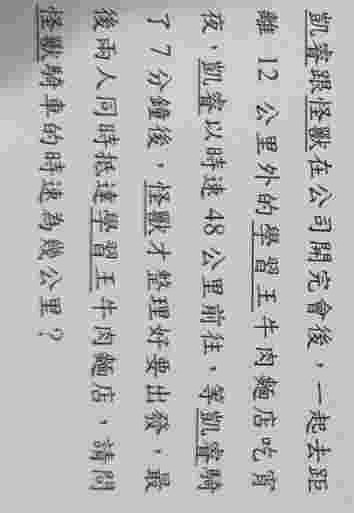 凱睿跟怪獸在公司開完會後，一起去距
離 12 公里外的學習王牛肉麵店吃宵
夜，凱睿以時速 48 公里前往，等凱睿騎
了 7 分鐘後，怪獸才整理好要出發，最
後兩人同時抵達學習王牛肉麵店，請問
怪獸騎車的時速為幾公里？